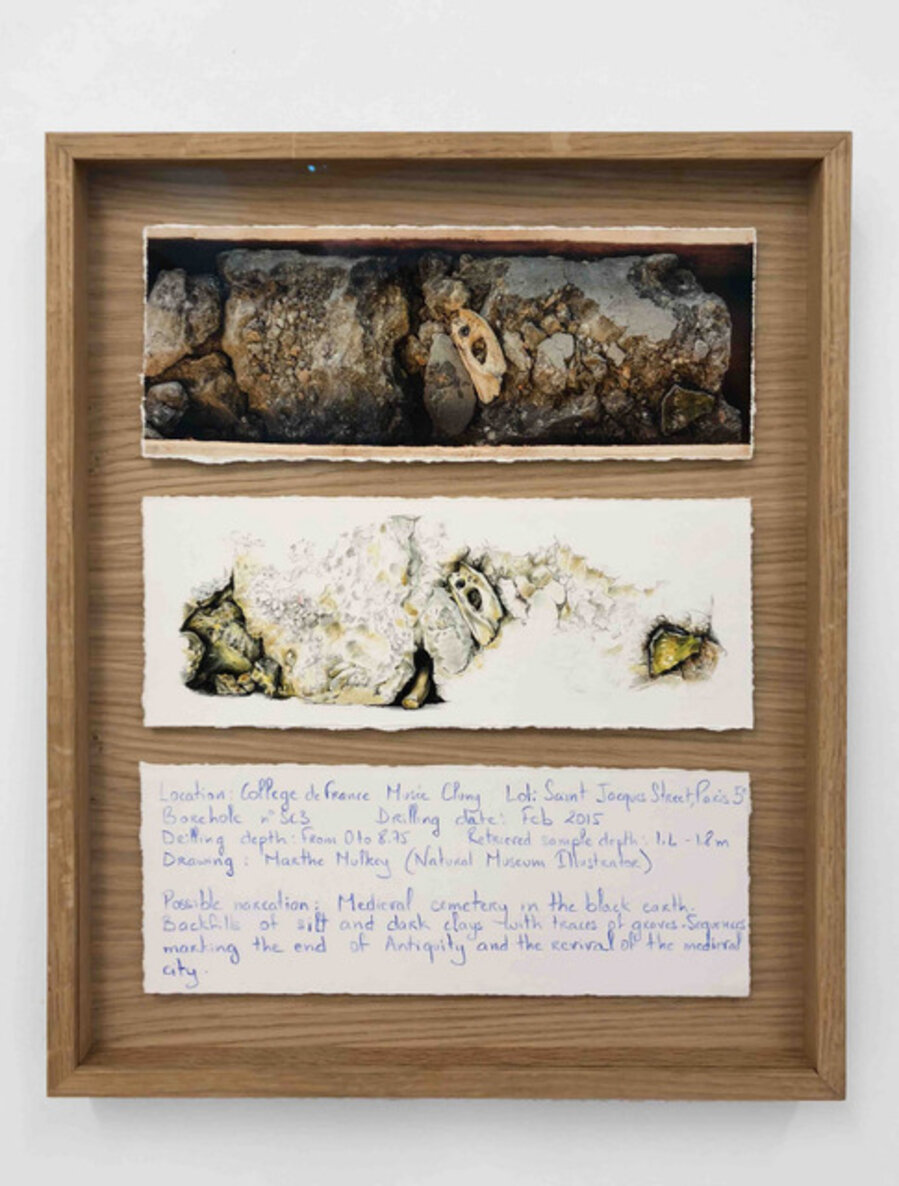 Location: College de France Musée Cluny Lot: Saint Jacques Street, Paris 5e
Borehole n° Sc3 Drilling date: Feb 2015
Drilling depth: From 0 to 8.75 Retrieved sample depth: 1.2 - 1.8m
Drawing: Marthe Mulkey (Natural Museum Illustrator)
Possible narration: Medieval cemetery in the black earth.
Backfills of silt and dark clays with traces of graves. Sequences
marking the end of Antiquity and the revival of the medieval
city.